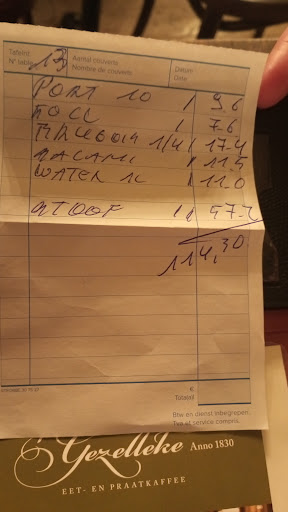 Tafelnr
N° table
13
Aantal couverts
Nombre de couverts
Datum
Date
PORT 10 1 9.6
1 7.6
1/4 17.4
11.5
WATER 1L 11.0
STOOF 11 57.2
114,30
€
Totaal
Btw en dienst inbegrepen.
Tva et service compris.
Gezelleke Anno 1830
EET- EN PRAATKAFFEE